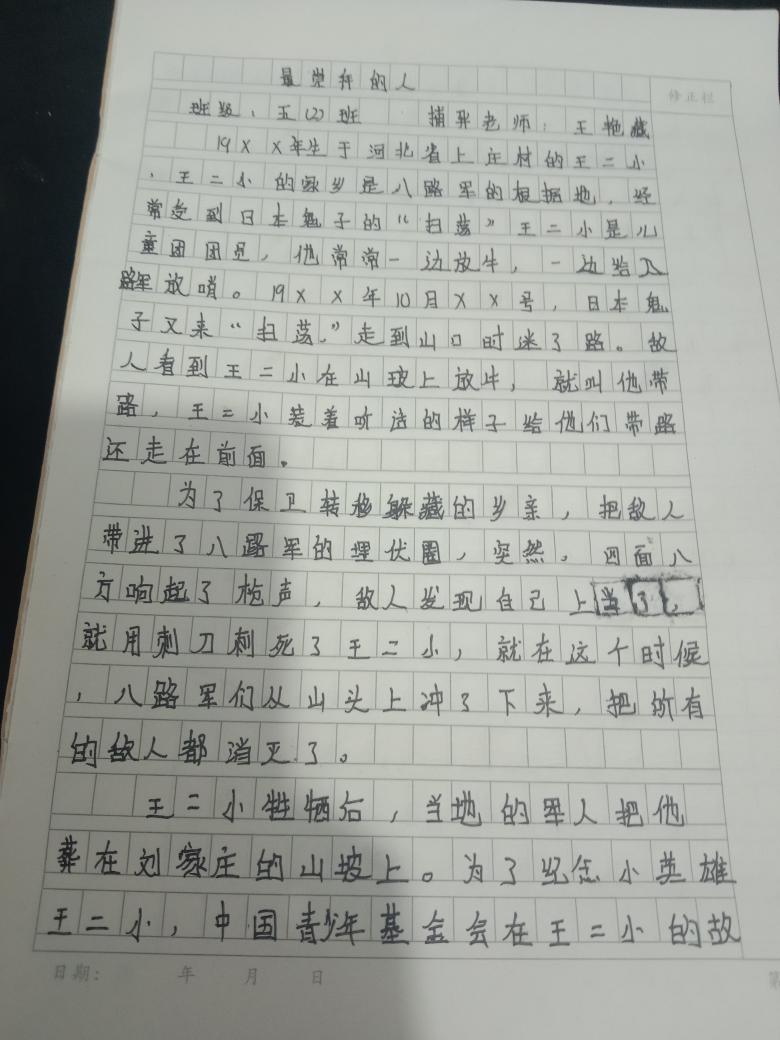 最觉得的人
修正栏
班级:五(2)班 辅导老师:王艳藏
19XX年生于河北省上庄村的王二小
,王二小的家乡是八路军的根据地,经
常受到日本鬼子的“扫荡”王二小是儿
童团团员,他常常一边放牛,一边给八
路军放哨。19XX年10月XX号,日本鬼
子又来“扫荡,”走到山口时迷了路。敌
人看到王二小在山坡上放牛,就叫他带
路,王二小装着听话的样子给他们带路
还走在前面。
为了保卫转移躲藏的乡亲,把敌人
带进了八路军的埋伏圈,突然,四面八
方响起了枪声,敌人发现自己上当了,
就用刺刀刺死了王二小,就在这个时候
,八路军们从山头上冲了下来,把所有
的敌人都消灭了。
王二小牲牺后,当地的军人把他
葬在刘家庄的山坡上。为了纪念小英雄
王二小,中国青少年基金会在王二小的故
日期: 年 月 日
第